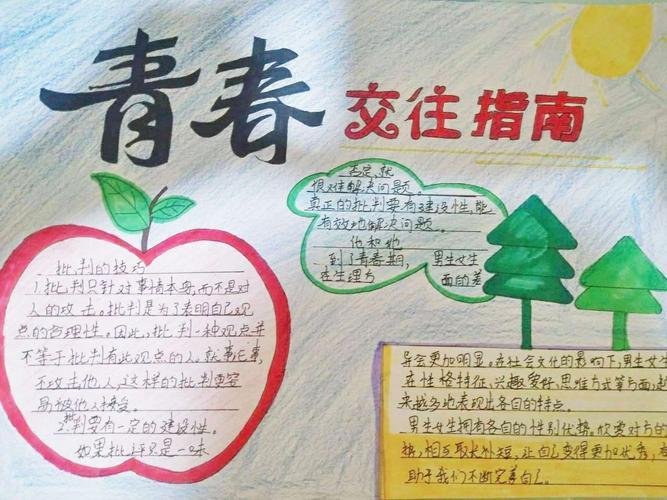 青春
交往指南
批判的技巧
1.批判只针对事情本身,而不是对
人的攻击。批判是为了表明自己观
点的合理性。因此,批判一种观点并
不等于批判有此观点的人,就事论事,
不攻击他人,这样的批判更容
易被他人接受。
2.批判要有一定的建设性。
如果批评只是一味
否定,就
很难解决问题。
真正的批判要有建设性,能
有效地解决问题。
他和她
到了青春期, 男生女生
在生理方 面的差
异会更加明显。在社会文化的影响下,男生女生
在性格特征、兴趣爱好、思维方式等方面,越
来越多地表现出各自的特点。
男生女生拥有各自的性别优势。欣赏对方的
势,相互取长补短,让自己变得更加优秀,有
助于我们不断完善自己。